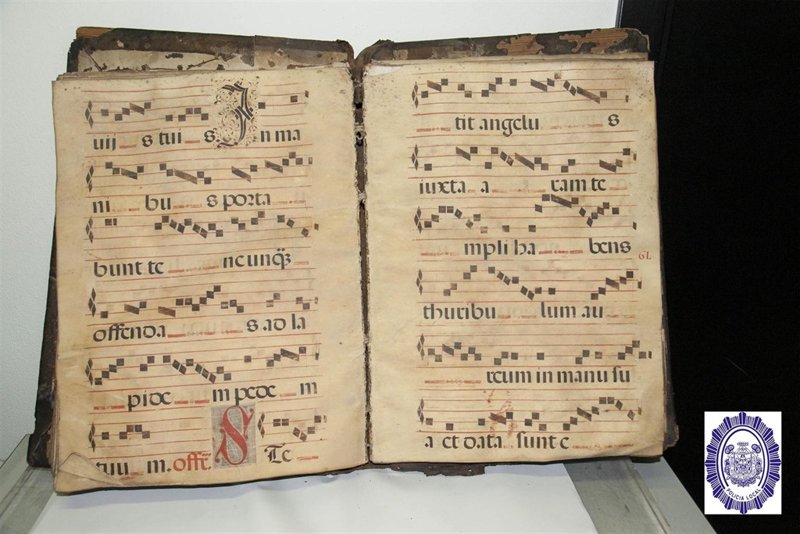 uij s tui s In ma
ni bu s porta
bunt te ne unq̃ꝫ
offenda s ad la
pide m pede m
tuu m. offr̃. S Te
tit angelu s
iuxta a ram te
mpli ha bens
61.
thuribu lum au
reum in manu su
a et data sunt e
POLICIA LOCAL